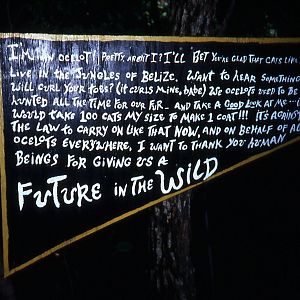 I'M AN OCELOT! PRETTY, AREN'T I? I'LL BET YOU'RE GLAD THAT CATS LIKE
LIVE IN THE JUNGLES OF BELIZE. WANT TO HEAR SOMETHING
WILL CURL YOUR TOES? (IT CURLS MINE, BABE) WE OCELOTS USED TO BE
HUNTED ALL THE TIME FOR OUR FUR. AND TAKE A GOOD LOOK AT ME...
WOULD TAKE 100 CATS MY SIZE TO MAKE 1 COAT!!! IT'S AGAINST
THE LAW TO CARRY ON LIKE THAT NOW, AND ON BEHALF OF
OCELOTS EVERYWHERE, I WANT TO THANK YOU HUMAN
BEINGS FOR GIVING US A
FUTURE IN THE WILD